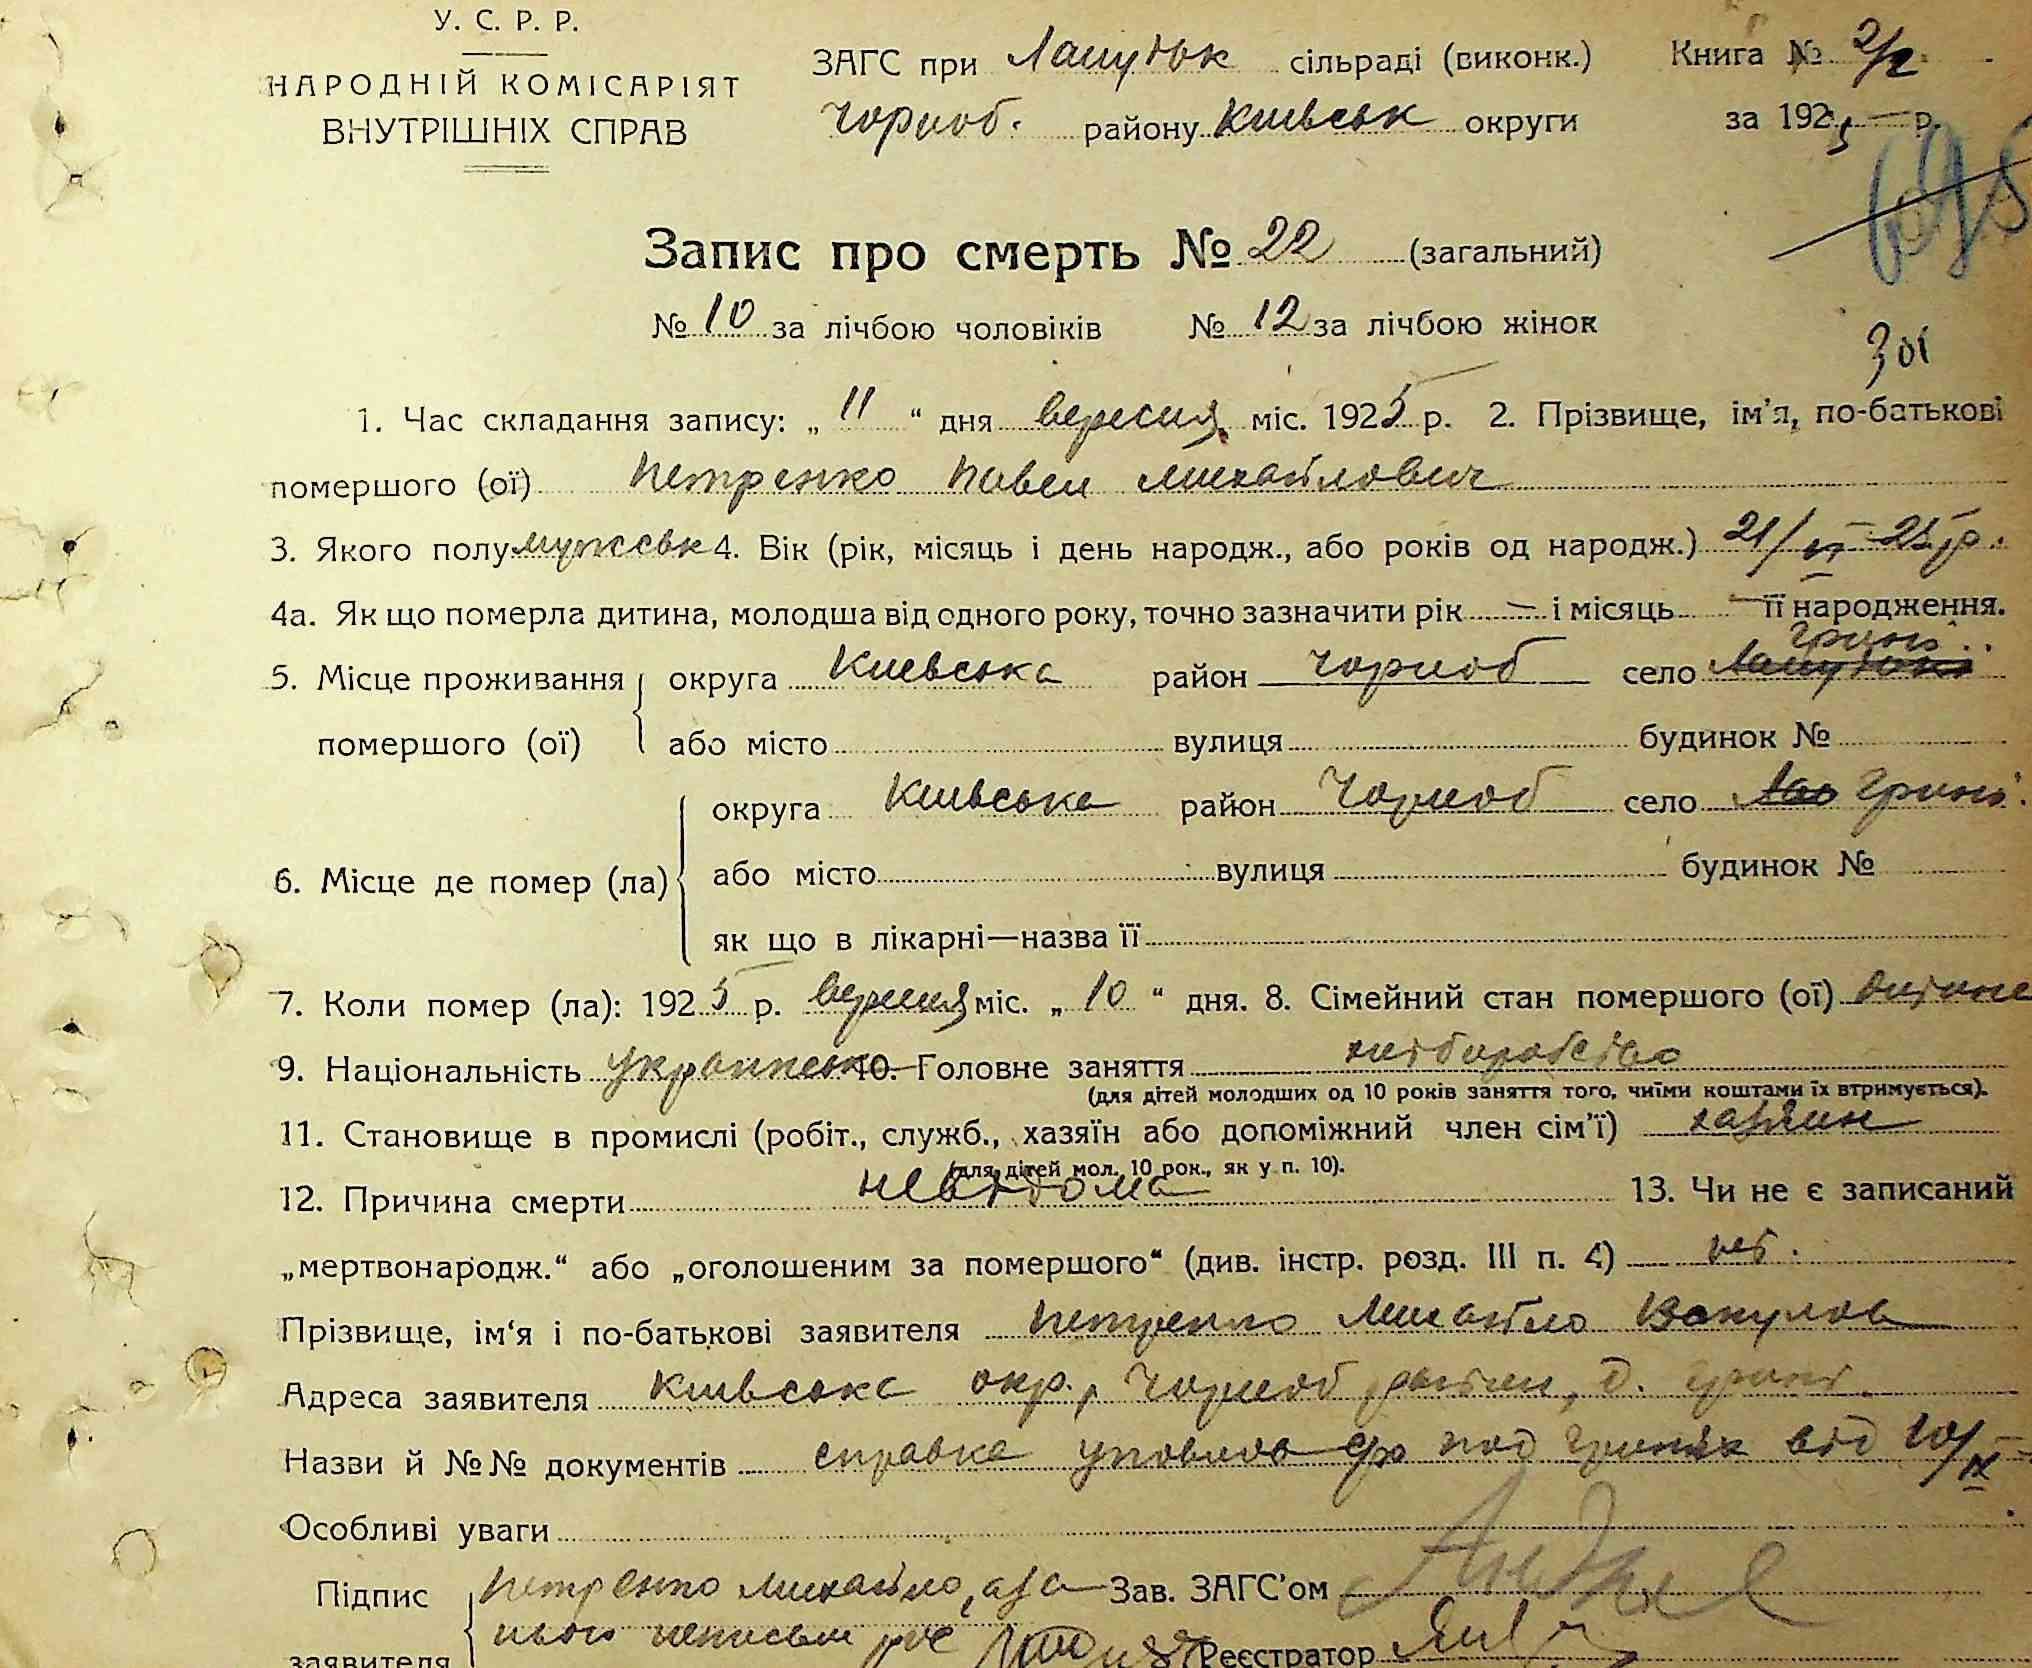 У. С. Р. Р.
НАРОДНІЙ КОМІСАРІЯТ
ВНУТРІШНІХ СПРАВ
ЗАГС при Лапутьк сільраді (виконк.) Книга № 2/2
Чорноб. району Київськ округи за 1925 р.
698
Запис про смерть № 22 (загальний)
№ 10 за лічбою чоловіків № 12 за лічбою жінок
301
1. Час складання запису: „ 11 “ дня вересня міс. 1925 р. 2. Прізвище, ім'я, по-батькові
помершого (ої) Петренко Павел Михайлович
3. Якого полу мужськ 4. Вік (рік, місяць і день народж., або років од народж.) 21/VI-25 р.
4а. Як що померла дитина, молодша від одного року, точно зазначити рік — і місяць — її народження.
5. Місце проживання округа Киевська район Чорноб село
помершого (ої) або місто вулиця будинок №
округа Київська район Чорноб село
6. Місце де помер (ла) або місто вулиця будинок №
як що в лікарні—назва її
7. Коли помер (ла): 1925 р. вересня міс. „ 10 “ дня. 8. Сімейний стан помершого (ої) дитина
9. Національність 10. Головне заняття хліборобство
(для дітей молодших од 10 років заняття того, чиїми коштами їх втримується).
11. Становище в промислі (робіт., служб., хазяїн або допоміжний член сім'ї) хазяин
(для дітей мол. 10 рок., як у п. 10).
12. Причина смерти невідома 13. Чи не є записаний
„мертвонародж.“ або „оголошеним за помершого“ (див. інстр. розд. III п. 4) нет.
Прізвище, ім‘я і по-батькові заявителя Петренко Михайло Вакулов
Адреса заявителя Київська окр., Чорноб район, д.
Назви й №№ документів справка уповнов від 10/IX
Особливі уваги
Підпис Петренко Михайло, а за Зав. ЗАГС'ом
заявителя нього неписьм Реєстратор